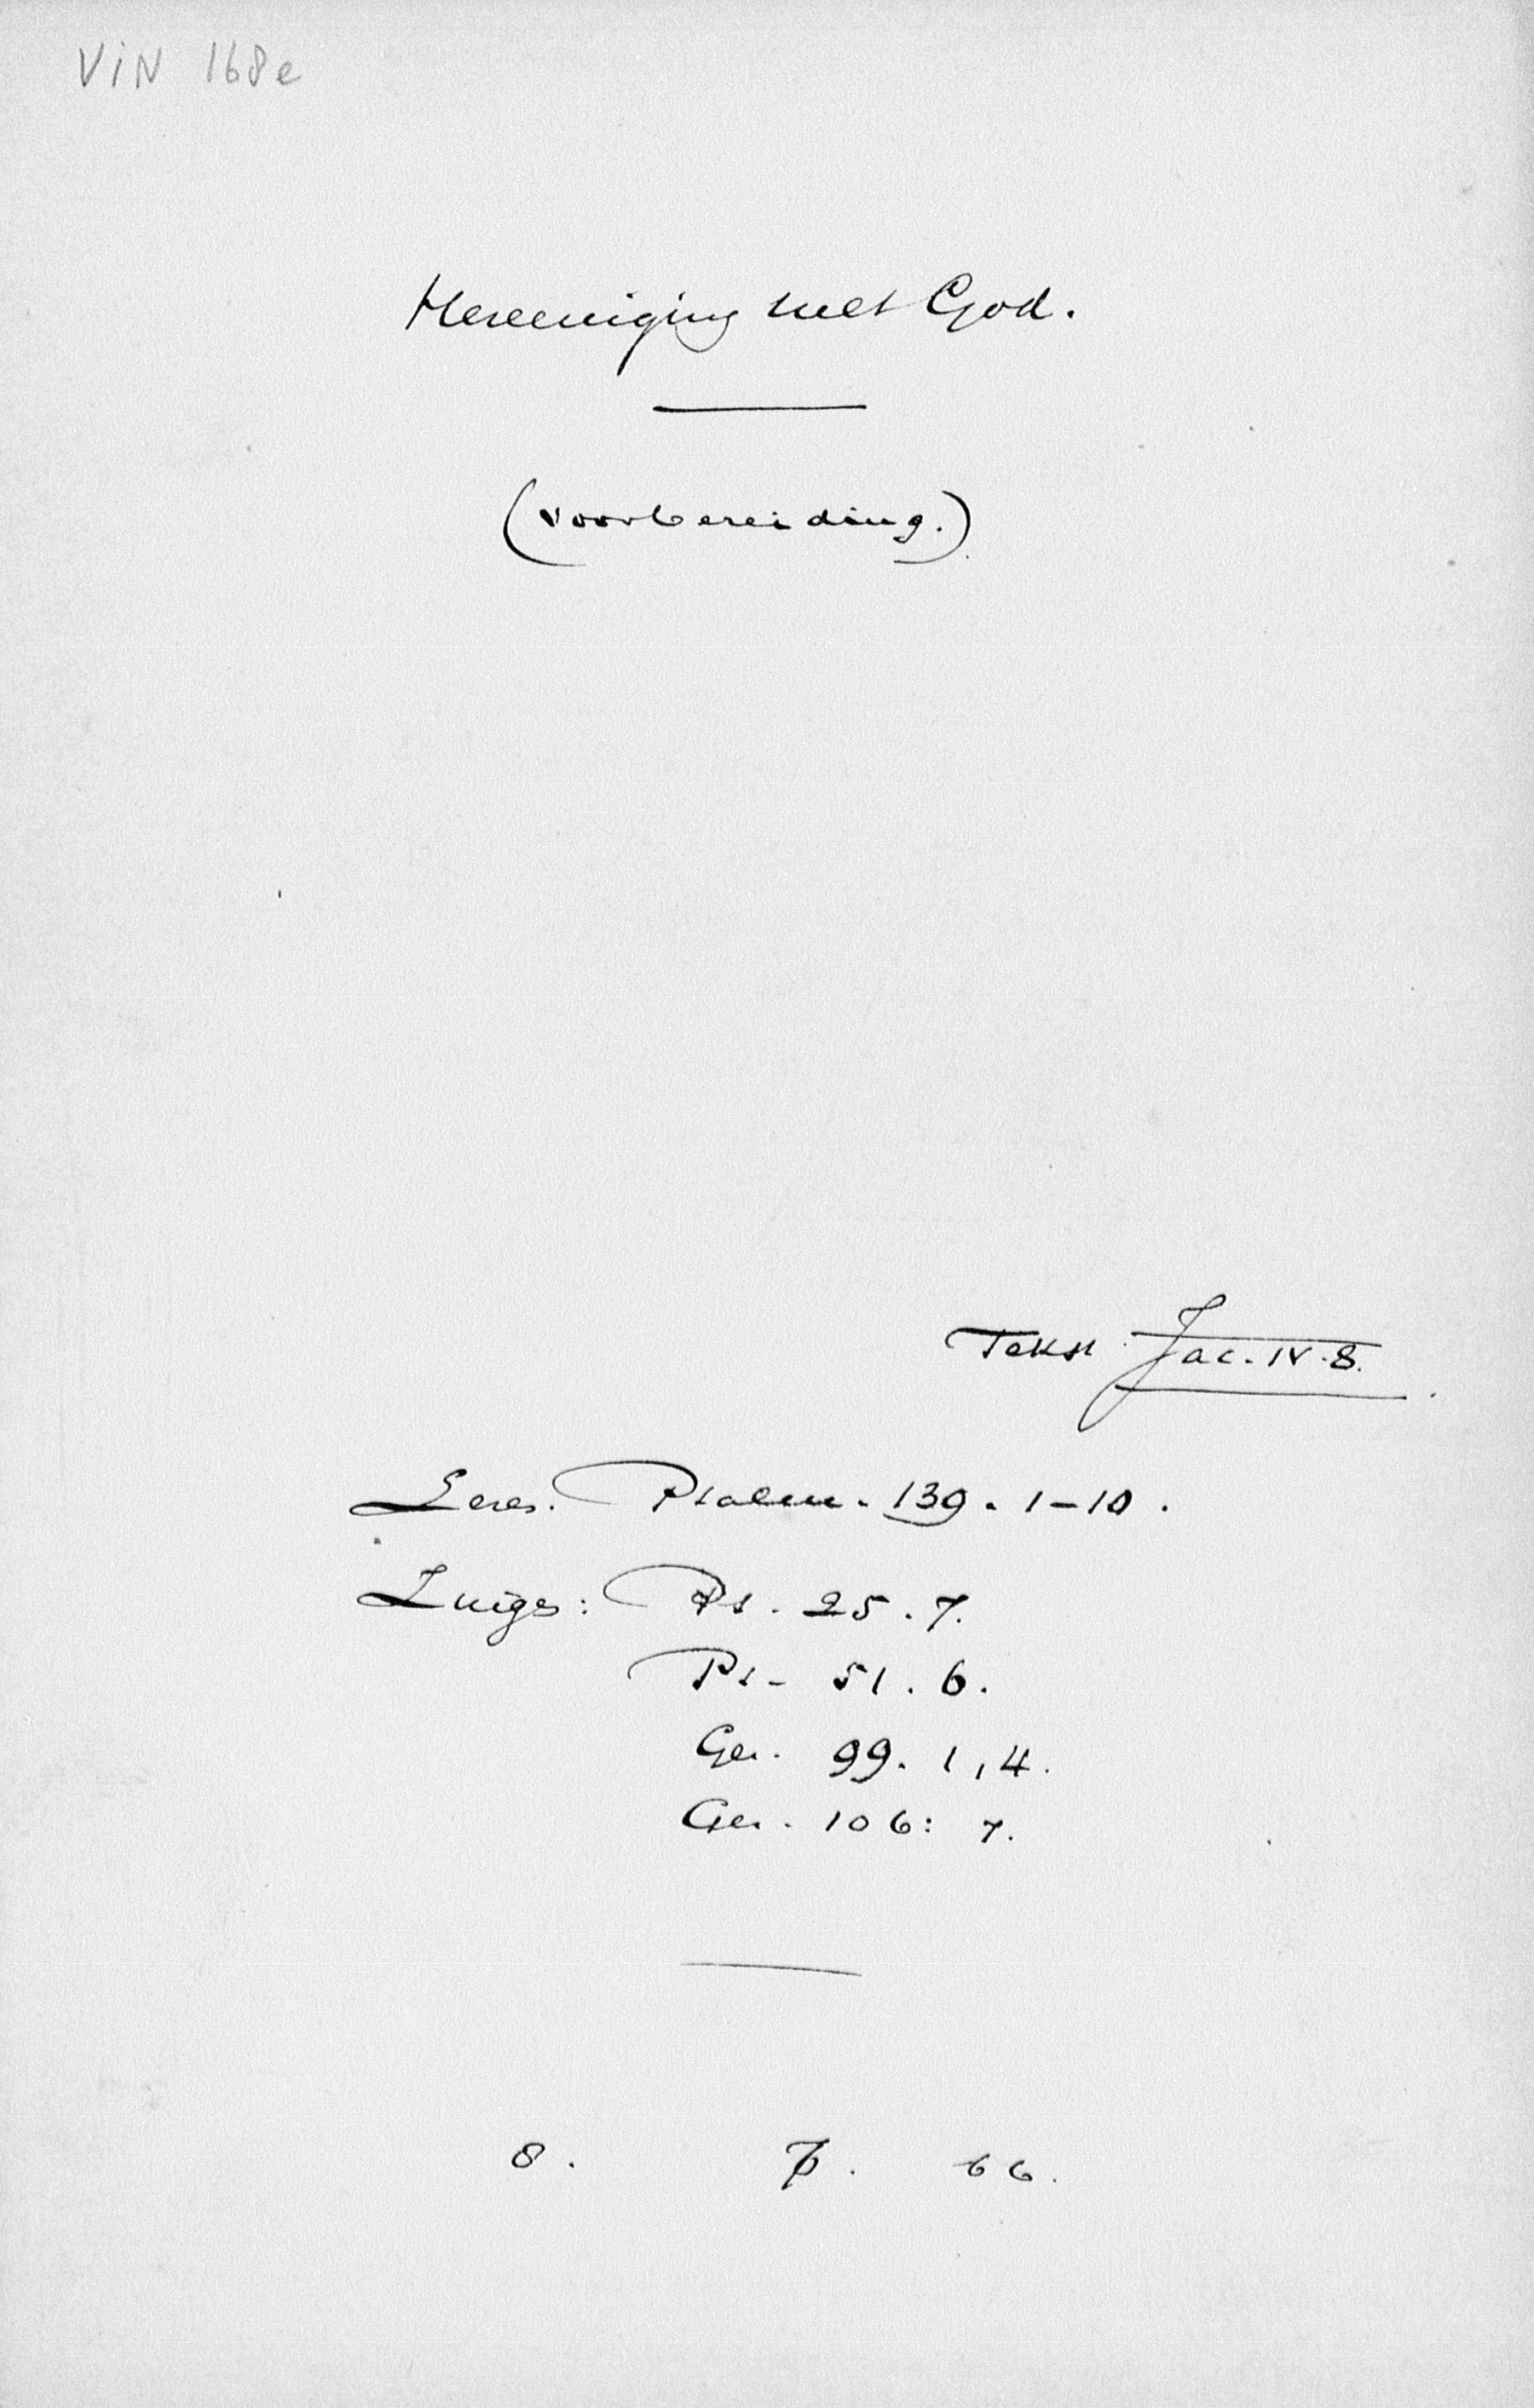 ViN 168e
Hereeniging met God.
(voorbereiding.)
Tekst Jac. IV. 8.
Lees. Psalm. 139. 1-10.
Zinge: Ps. 25. 7.
Ps. 51. 6.
Gez. 99. 1, 4.
Gez. 106: 7.
8. 66.